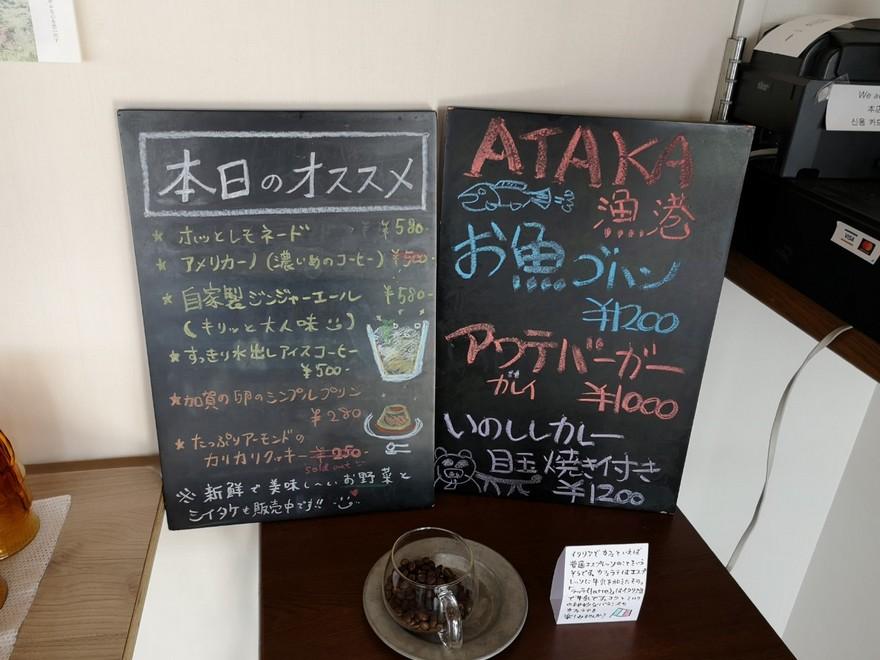 本日のオススメ
★ ホッとしそネード ¥580-
★ アメリカーノ(濃いめのコーヒー) ¥500-
★ 自家製ジンジャーエール ¥580-
(キリッと大人味)
★ すっきり水出しアイスコーヒー
¥500-
★ 加賀の卵のシンプルプリン
¥280
★ たっぷりアーモンドの
カリカリクッキー ¥250-
sold out
※ 新鮮で美味し〜いお野菜と
シイタケも販売中です!!
ATAKA
漁港
お魚ゴハン
¥1200
アウテバーガー
ガレイ
¥1000
いのししカレー
目玉焼き付き
¥1200
We a
本店
신용 카드
VISA